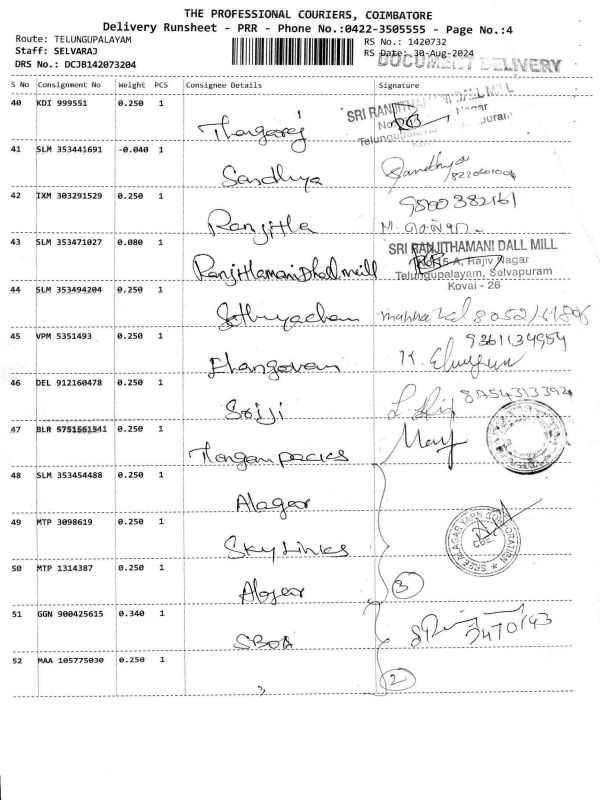 THE PROFESSIONAL COURIERS, COIMBATORE
Delivery Runsheet - PRR - Phone No.:0422-3505555 - Page No.:4
Route: TELUNGUPALAYAM
RS No.: 1420732
Staff: SELVARAJ
RS Date: 30-Aug-2024
DOCUMENT DELIVERY
DRS No.: DCJB142073204
S No Consignment No Weight PCS Consignee Details Signature
40 KDI 999551 0.250 1 Thangaraj
SRI RANJITHAMANI DALL MILL
Nagar
Telungupalayam
41 SLM 353441691 -0.040 1 Sandhya Sandhya
8220601004
42 IXM 303291529 0.250 1 Ranjitha 9500382161
43 SLM 353471027 0.080 1 Ranjithamani Dhall mill
SRI RANJITHAMANI DALL MILL
No. 15-A, Rajiv Nagar
Telungupalayam, Selvapuram
Kovai - 26
44 SLM 353494204 0.250 1 Sathyachan
45 VPM 5351493 0.250 1 Elangovan 9361134954
46 DEL 912160478 0.250 1 Sriji
47 BLR 5751561541 0.250 1 Thangam packs
48 SLM 353454488 0.250 1 Alagar
49 MTP 3098619 0.250 1 Sky Links
SREE ALAGAR YARN CORPORATION
CBE
50 MTP 1314387 0.250 1 Alagar 3
51 GGN 900425615 0.340 1 SBOA
52 MAA 105775030 0.250 1 " 2